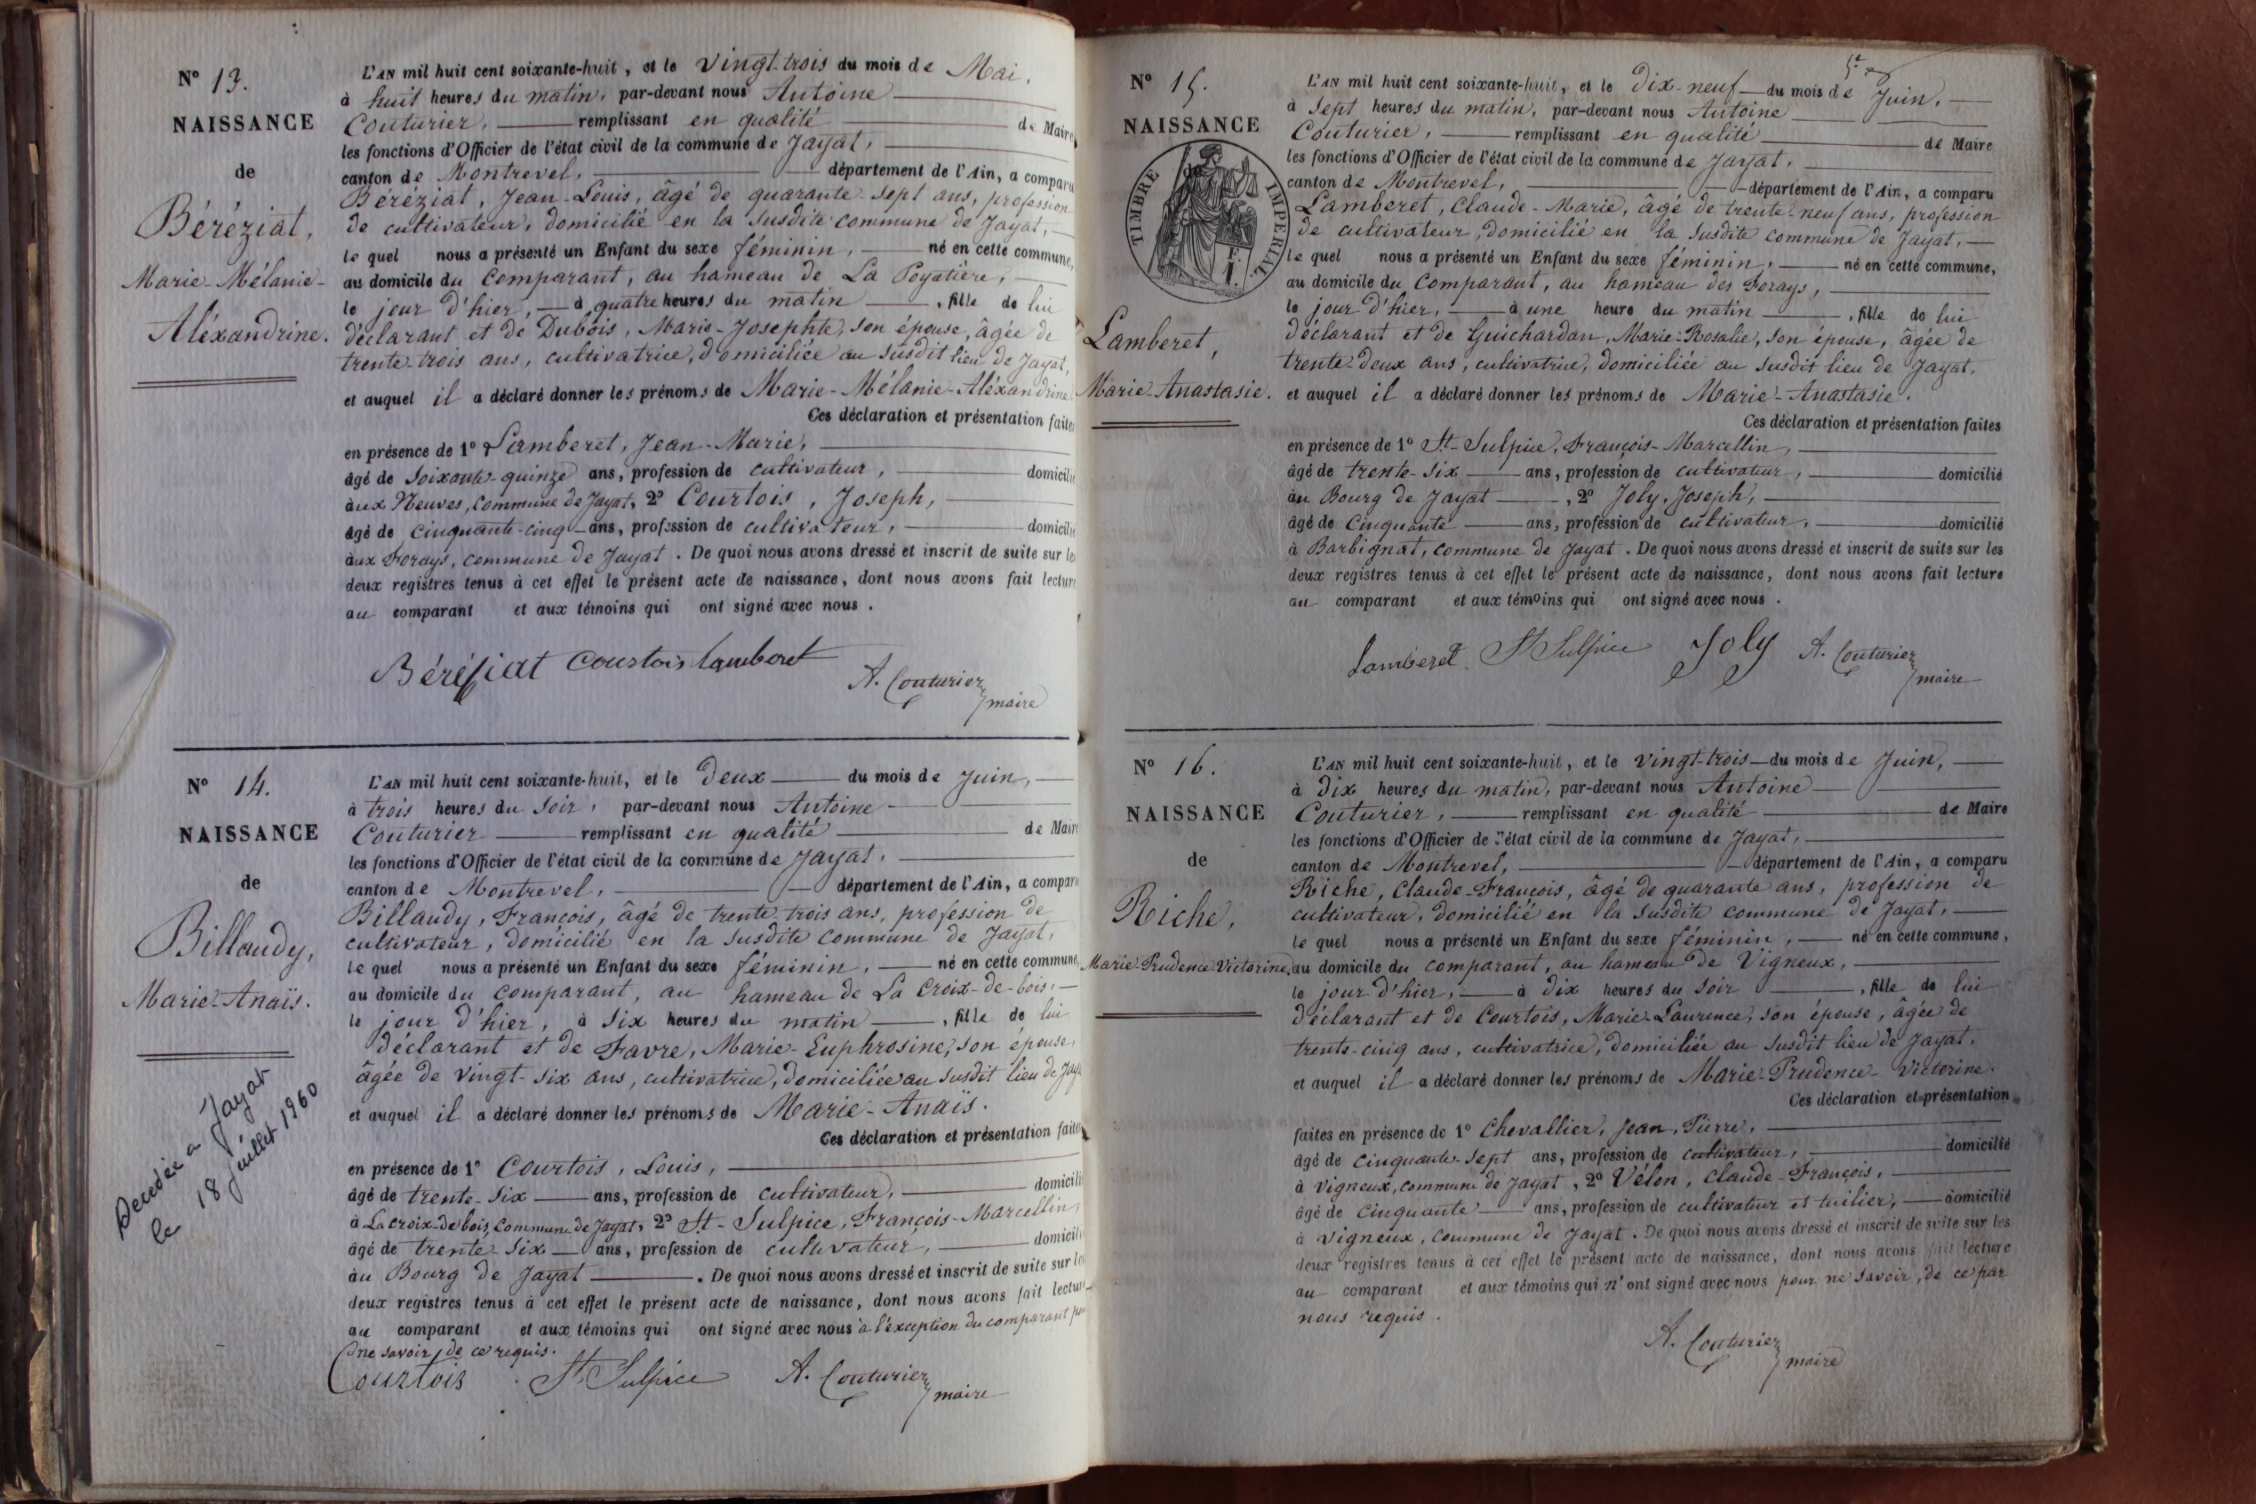 N° 13.
NAISSANCE
de
Béréziat,
Marie-Mélanie-
Aléxandrine.
L'AN mil huit cent soixante-huit, et le vingt-trois du mois de Mai,
à huit heures du matin, par-devant nous Antoine
Couturier, remplissant en qualité de Maire
les fonctions d'Officier de l'état civil de la commune de Jayat,
canton de Montrevel, département de l'Ain, a comparu
Béréziat, Jean-Louis, âgé de quarante-sept ans, profession
de cultivateur, domicilié en la susdite commune de Jayat,
lequel nous a présenté un Enfant du sexe féminin, né en cette commune,
au domicile du comparant, au hameau de La Peyatière,
le jour d'hier, à quatre heures du matin, fille de lui
déclarant et de Dubois, Marie-Josephte, son épouse, âgée de
trente-trois ans, cultivatrice, domiciliée au susdit lieu de Jayat,
et auquel il a déclaré donner les prénoms de Marie-Mélanie-Aléxandrine
Ces déclaration et présentation faites
en présence de 1° Lamberet, Jean-Marie,
âgé de soixante-quinze ans, profession de cultivateur, domicilié
aux Neuves, commune de Jayat, 2° Courtois, Joseph,
âgé de cinquante-cinq ans, profession de cultivateur, domicilié
aux Forays, commune de Jayat. De quoi nous avons dressé et inscrit de suite sur les
deux registres tenus à cet effet le présent acte de naissance, dont nous avons fait lecture
au comparant et aux témoins qui ont signé avec nous.
Béréziat Courtois Lamberet
A. Couturier
maire
N° 14.
NAISSANCE
de
Billaudy,
Marie-Anaïs.
Decédée a Jayat
le 18 juillet 1960
L'AN mil huit cent soixante-huit, et le deux du mois de Juin,
à trois heures du soir, par-devant nous Antoine
Couturier remplissant en qualité de Maire
les fonctions d'Officier de l'état civil de la commune de Jayat,
canton de Montrevel, département de l'Ain, a comparu
Billaudy, François, âgé de trente-trois ans, profession de
cultivateur, domicilié en la susdite commune de Jayat,
lequel nous a présenté un Enfant du sexe féminin, né en cette commune,
au domicile du comparant, au hameau de La Croix-de-bois,
le jour d'hier, à six heures du matin, fille de lui
déclarant et de Favre, Marie-Euphrosine, son épouse,
âgée de vingt-six ans, cultivatrice, domiciliée au susdit lieu de Jayat
et auquel il a déclaré donner les prénoms de Marie-Anaïs.
Ces déclaration et présentation faites
en présence de 1° Courtois, Louis,
âgé de trente-six ans, profession de cultivateur, domicilié
à La croix-de bois, commune de Jayat, 2° St-Sulpice, François-Marcellin,
âgé de trente-six ans, profession de cultivateur, domicilié
au Bourg de Jayat. De quoi nous avons dressé et inscrit de suite sur les
deux registres tenus à cet effet le présent acte de naissance, dont nous avons fait lecture
au comparant et aux témoins qui ont signé avec nous à l'exception du comparant pour
ne savoir, de ce requis.
Courtois St Sulpice A. Couturier
maire
N° 15.
NAISSANCE
TIMBRE IMPERIAL
Lamberet,
Marie-Anastasie.
L'AN mil huit cent soixante-huit, et le dix-neuf du mois de Juin,
à sept heures du matin, par-devant nous Antoine
Couturier, remplissant en qualité de Maire
les fonctions d'Officier de l'état civil de la commune de Jayat,
canton de Montrevel, département de l'Ain, a comparu
Lamberet, Claude-Marie, âgé de trente-neuf ans, profession
de cultivateur, domicilié en la susdite commune de Jayat,
lequel nous a présenté un Enfant du sexe féminin, né en cette commune,
au domicile du comparant, au hameau des Forays,
le jour d'hier, à une heure du matin, fille de lui
déclarant et de Guichardan, Marie-Rosalie, son épouse, âgée de
trente-deux ans, cultivatrice, domiciliée au susdit lieu de Jayat,
et auquel il a déclaré donner les prénoms de Marie-Anastasie.
Ces déclaration et présentation faites
en présence de 1° St-Sulpice, François-Marcellin,
âgé de trente-six ans, profession de cultivateur, domicilié
au Bourg de Jayat, 2° Joly, Joseph,
âgé de cinquante ans, profession de cultivateur, domicilié
à Barbignat, commune de Jayat. De quoi nous avons dressé et inscrit de suite sur les
deux registres tenus à cet effet le présent acte de naissance, dont nous avons fait lecture
au comparant et aux témoins qui ont signé avec nous.
Lamberet St Sulpice Joly A. Couturier
maire
N° 16.
NAISSANCE
de
Riche,
Marie-Prudence-Victorine.
L'AN mil huit cent soixante-huit, et le vingt-trois du mois de Juin,
à dix heures du matin, par-devant nous Antoine
Couturier, remplissant en qualité de Maire
les fonctions d'Officier de l'état civil de la commune de Jayat,
canton de Montrevel, département de l'Ain, a comparu
Riche, Claude-François, âgé de quarante ans, profession de
cultivateur, domicilié en la susdite commune de Jayat,
lequel nous a présenté un Enfant du sexe féminin, né en cette commune,
au domicile du comparant, au hameau de Vigneux,
le jour d'hier, à dix heures du soir, fille de lui
déclarant et de Courtois, Marie-Laurence, son épouse, âgée de
trente-cinq ans, cultivatrice, domiciliée au susdit lieu de Jayat,
et auquel il a déclaré donner les prénoms de Marie-Prudence-Victorine.
Ces déclaration et présentation
faites en présence de 1° Chevallier, Jean, Pierre,
âgé de cinquante-sept ans, profession de cultivateur, domicilié
à Vigneux, commune de Jayat, 2° Vélon, Claude-François,
âgé de cinquante ans, profession de cultivateur et tuilier, domicilié
à Vigneux, commune de Jayat. De quoi nous avons dressé et inscrit de suite sur les
deux registres tenus à cet effet le présent acte de naissance, dont nous avons fait lecture
au comparant et aux témoins qui n'ont signé avec nous pour ne savoir, de ce par
nous requis.
A. Couturier
maire